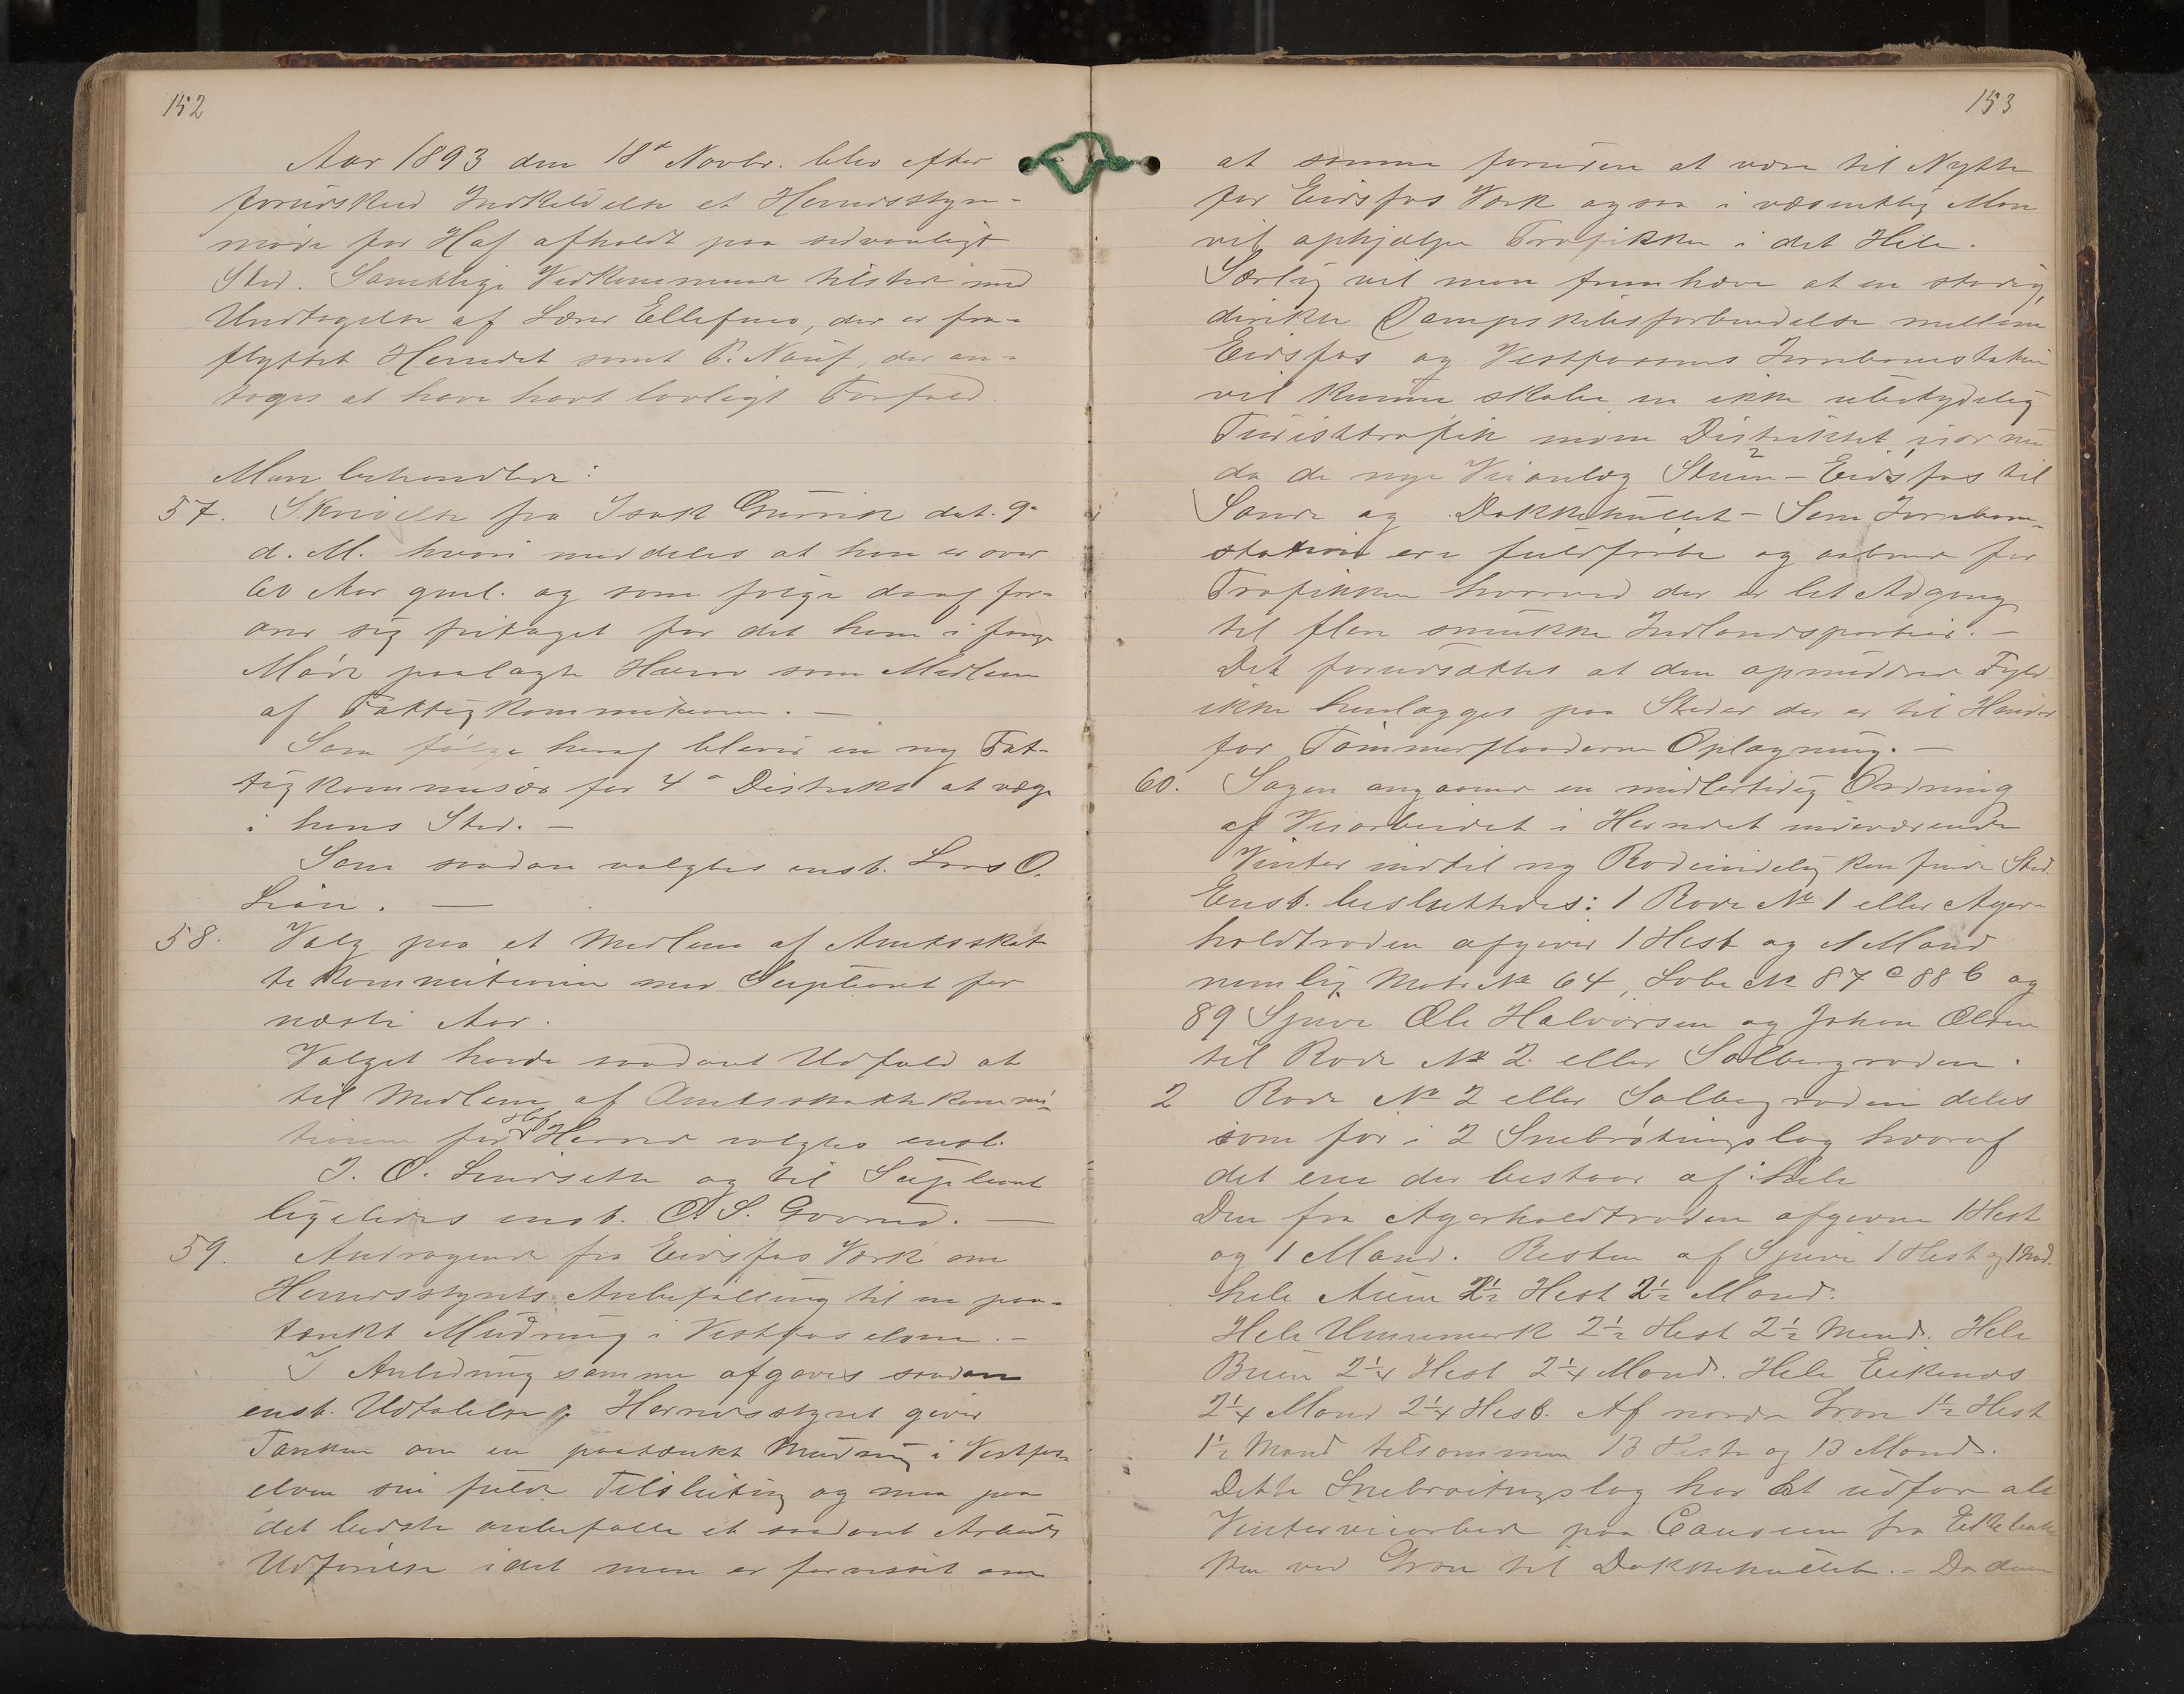 152
Aar 1893 den 18de Novbr. blev efter
forudskeed Indkaldelse et Herredsstyre-
møde for Hof afholdt paa sedvanligt
Sted. Samtlige Vedkommende tilstede med
Undtagelse af Lærer Ellefsen, der er fra-
flyttet Herredet samt P. Nauf, der an-
toges at have havt lovligt Forfald.
Man behandlede:
57. Skrivelse fra Isak dat. 9de
d. M. hvori meddeles at han er over
60 Aar gml. og som følge deraf for-
sig fritaget for det ham i forige
Møde paalagte Hverv som Medlem
af Fattigkommissionen. —
Som følge heraf bliver en ny Fat-
tigkommisær for 4de Distrikt at vælge
i hans Sted. —
Som saadan valgtes enst. Lars O.
Lian. —
58. Valg paa et Medlem af Amtsskat-
tekommissionen med Supleant for
næste Aar.
Valget havde saadant Udfald at
til Medlem af Amtsskattekommi-
sionen for Hof Herred valgtes enst.
J. O. og til Supleant
ligeledes enst. O. S. —
59. Andragende fra Eidsfos Værk om
Herredsstyrets Anbefalling til en paa-
tænkt Mudring i Vestfoselven. —
I Anledning samme afgaves saadan
enst. Udtalelse: Herredsstyret giver
Tanken om en paatænkt Mudring i Vestfos-
elven sin fulde Tilslutning og maa paa
det bedste anbefalle et saadant Arbeids
Udførelse idet man er forvisset om
153
at samme foruden at være til Nytte
for Eidsfos Værk ogsaa i væsentlig Mon
vil ophjælpe Trafikken i det Hele.
Særlig vil man fremhæve at en stadig,
direkte Dampskibsforbindelse mellem
Eidsfos og Vestfossens Jernbanestation
vil kunne skabe en ikke ubetydelig
Turisttrafik inden Distriktet, især nu
da de nye Veianlæg – Eidsfos til
Sande og Dakkehullet – Sem Jernbane-
station ere fuldførte og aabnede for
Trafikken hvorved der er let Adgang
til flere smukke Indlandspartier. —
Det forudsættes at den opmuddrede Fyld
ikke henlægges paa Steder der er til Hinder
for Tømmerflaadernes Oplagning. —
60. Sagen angaaende en midlertidig Ordning
af Veiarbeidet i Herredet indeværende
Vinter indtil ny Rodeindeling kan finde Sted.
Enst. besluttedes: 1 Rode No 1 eller Ager-
holdtroden afgiver 1 Hest og 1 Mand
nemlig Matr No 64, Løbe No 87 c 88 b og
89 Ole Halvorsen og Johan Olsen
til Rode No 2 eller Solbergroden.
2 Rode No 2 eller Solbergroden deles
som før i 2 Snebrøtingslag hvoraf
det ene der bestaar af: hele
Den fra Agerholdtroden afgivne 1 Hest
og 1 Mand. Resten af 1 Hest og 1 Mand.
hele 2½ Hest 2½ Mand.
Hele 2½ Hest 2½ Mand. Hele
2¼ Hest 2¼ Mand. Hele Eikenes
2¼ Mand 2¼ Hest. Af nordre 1½ Hest
1½ Mand tilsammen 13 Heste og 13 Mand.
Dette Snebrøitingslag har at udføre alt
Vinterveiarbeide paa fra
ken ved til Dakkehullet. – Da denne